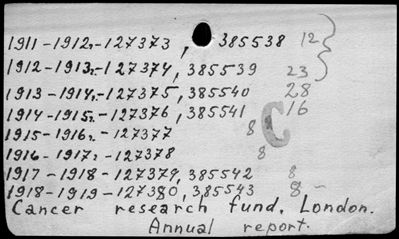 1911-1912,-127373, 385538 12
1912-1913,-127374, 385539 23
1913-1914,-127375, 385540 28
1914-1915,-127376, 385541 16
1915-1916,-127377 8
1916-1917,-127378 8
1917-1918-127379, 385542 8
1918-1919-127380, 385543 8
C
Cancer research fund. London.
Annual report.